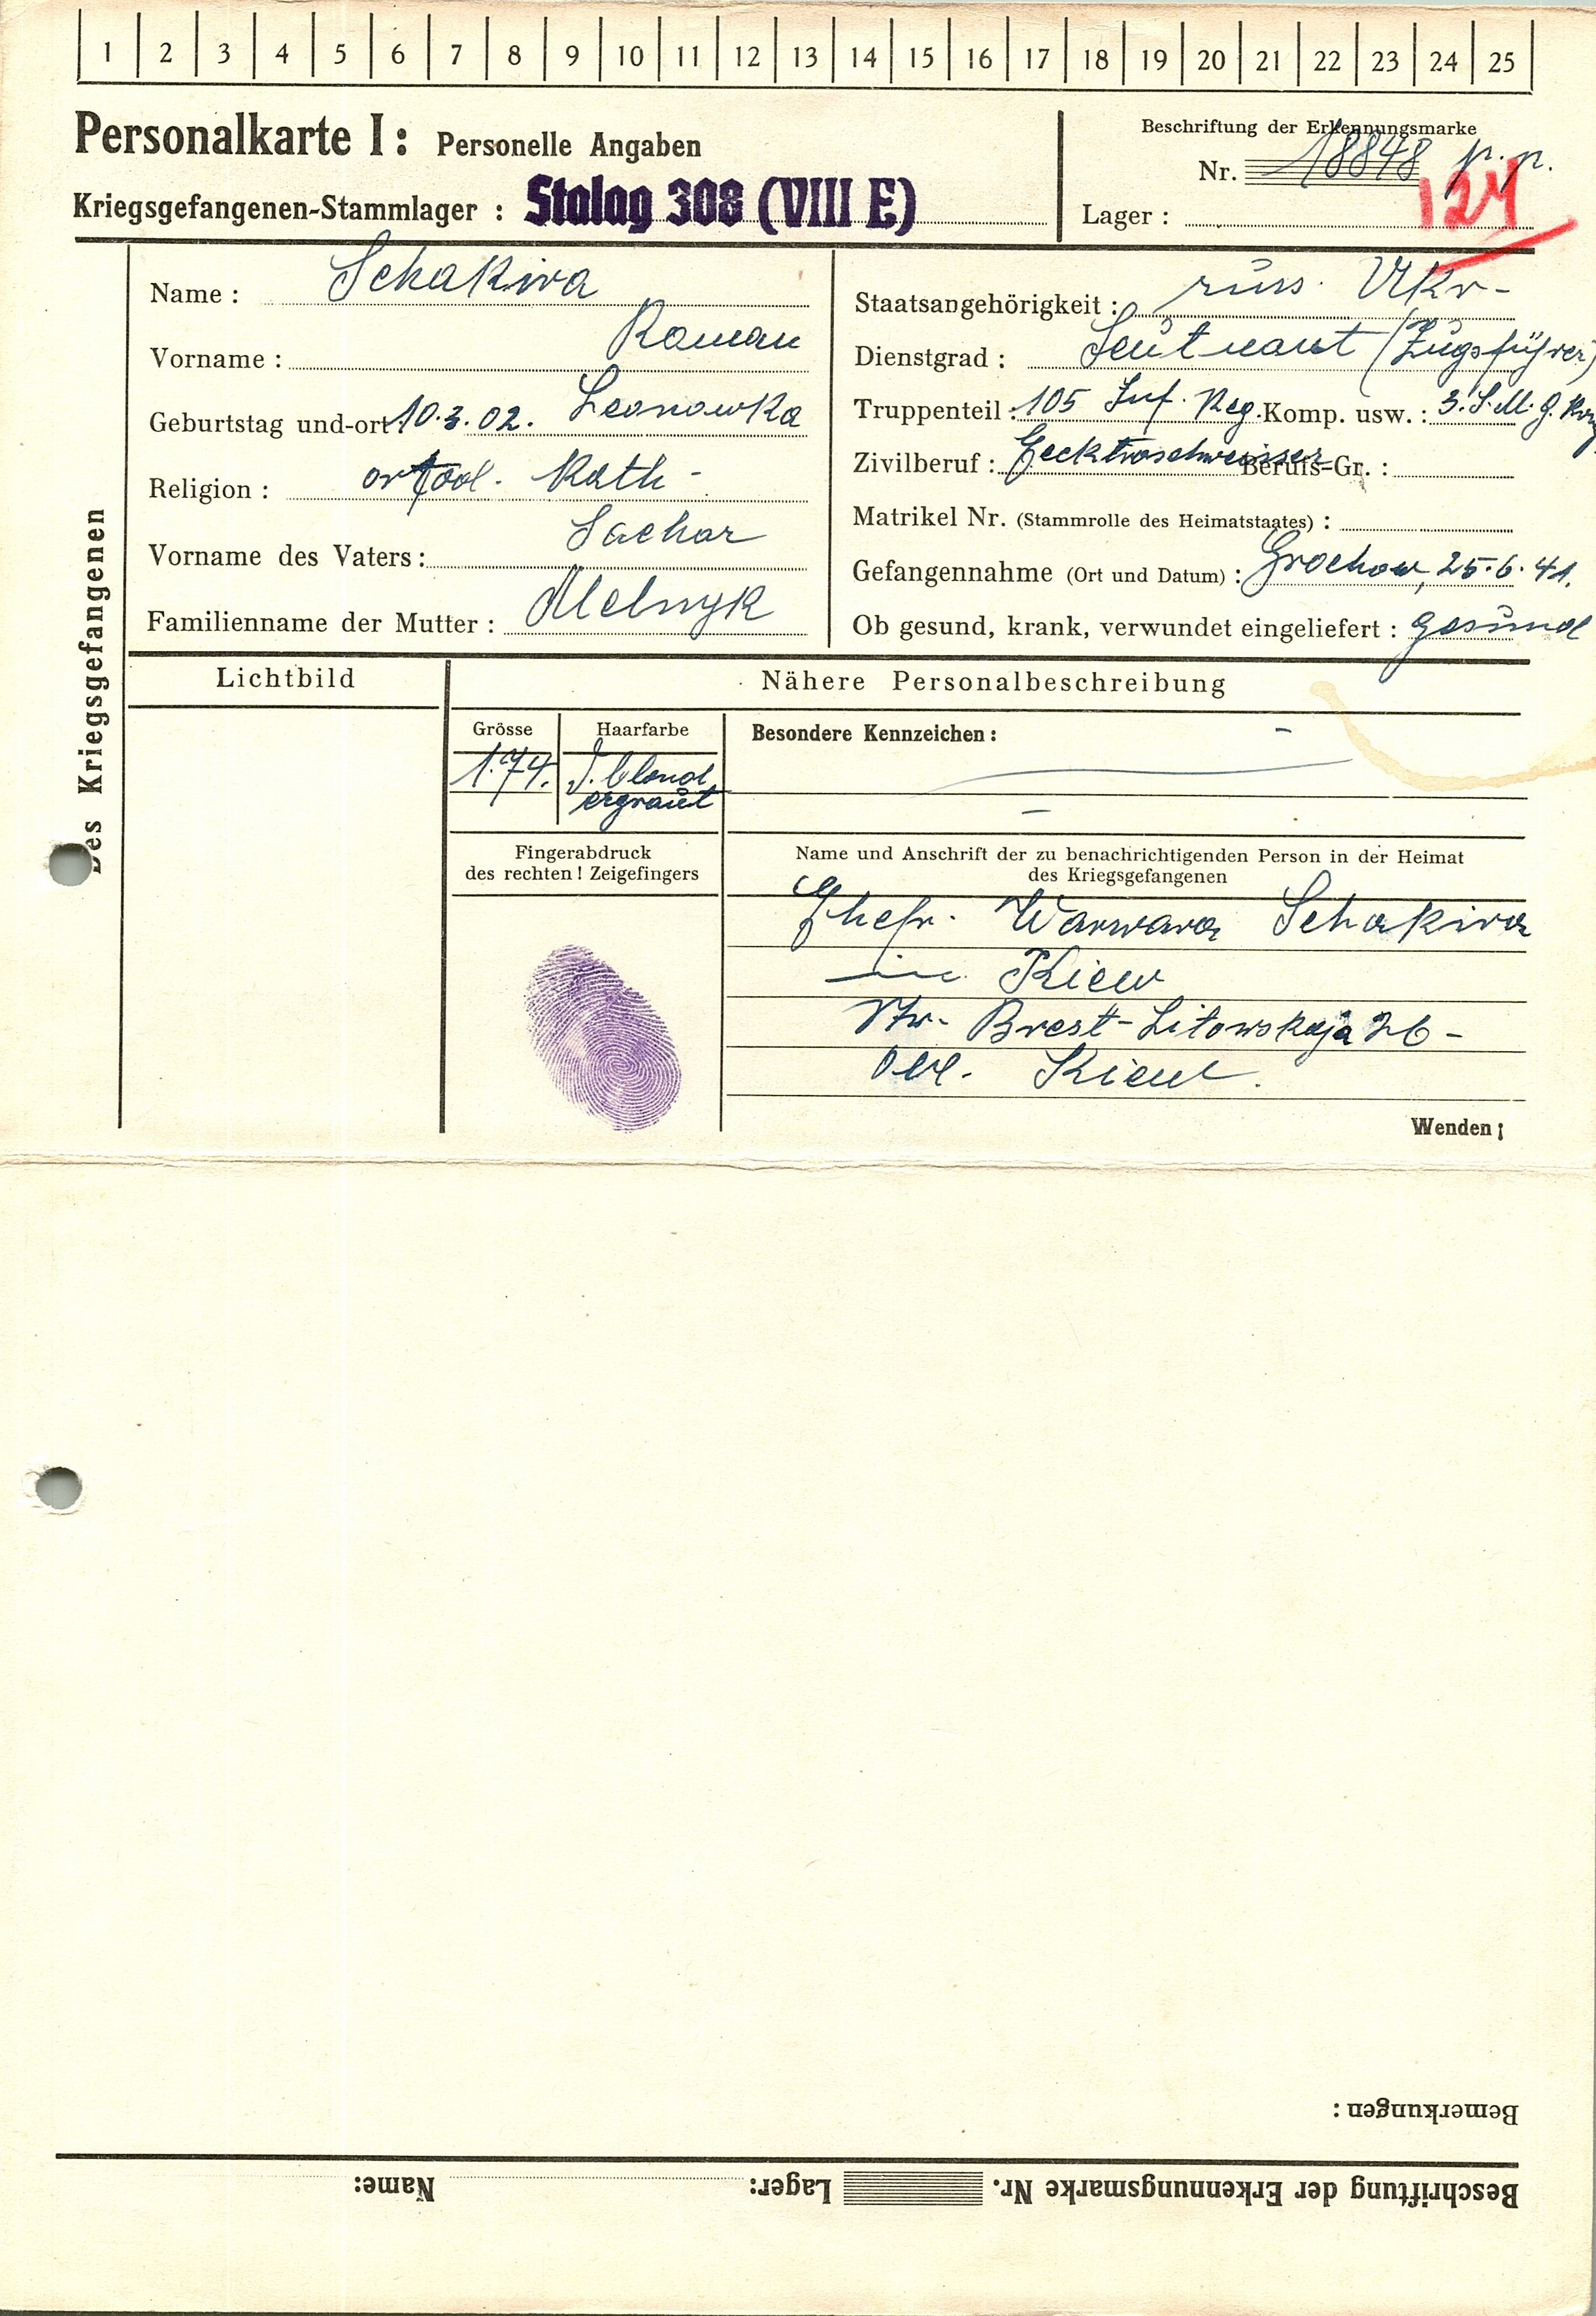 1 2 3 4 5 6 7 8 9 10 11 12 13 14 15 16 17 18 19 20 21 22 23 24 25
Personalkarte I: Personelle Angaben
Kriegsgefangenen-Stammlager : Stalag 308 (VIII E)
Beschriftung der Erkennungsmarke
Nr. 18848
Lager : 124
Des Kriegsgefangenen
Name : Schakira
Vorname : Roman
Geburtstag und-ort 10.3.02. Leonowka
Religion : ortod. Kath-
Vorname des Vaters: Sachar
Familienname der Mutter : Melnyk
Staatsangehörigkeit : russ. Ukr-
Dienstgrad : Leutnant (Zugsführer)
Truppenteil : 105 Inf. Reg. Komp. usw. : 3. S.M.G.
Zivilberuf : Berufs-Gr. :
Matrikel Nr. (Stammrolle des Heimatstaates) :
Gefangennahme (Ort und Datum) : Grochow, 25.6.41.
Ob gesund, krank, verwundet eingeliefert : gesund
Lichtbild
Nähere Personalbeschreibung
Grösse
1.74.
Haarfarbe
d. blond
ergraut
Besondere Kennzeichen : -
-
Fingerabdruck
des rechten! Zeigefingers
Name und Anschrift der zu benachrichtigenden Person in der Heimat
des Kriegsgefangenen
Ehefr. Warwara Schakira
in Kiew
Str. Brest-Litowskaja 26-
Kiew.
Wenden!
Bemerkungen:
Beschriftung der Erkennungsmarke Nr. Lager: Name: